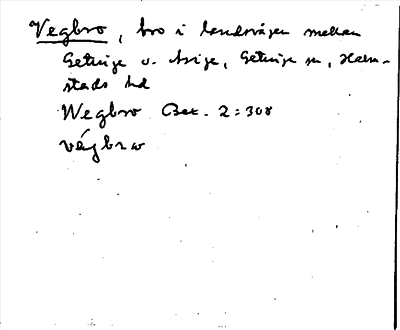 Vegbro, bro i landsvägen mellan
Getinge o. Asige, Getinge sn, Halm-
stads hd
Wegbro Bex. 2:308
vägbrω